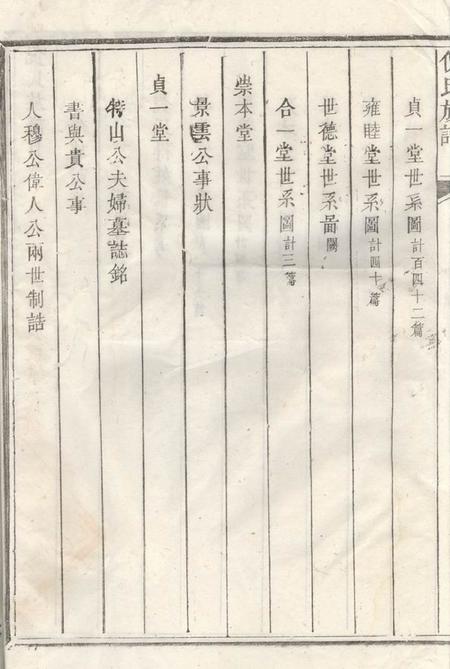 氏族譜
貞一堂世系圖計百四十二篇
雍睦堂世系圖計四十篇
世德堂世系啚闕
合一堂世系圖計三篇
崇本堂
景雲公事狀
貞一堂
山公夫婦墓誌銘
書與貴公事
人穆公偉人公兩世制誥